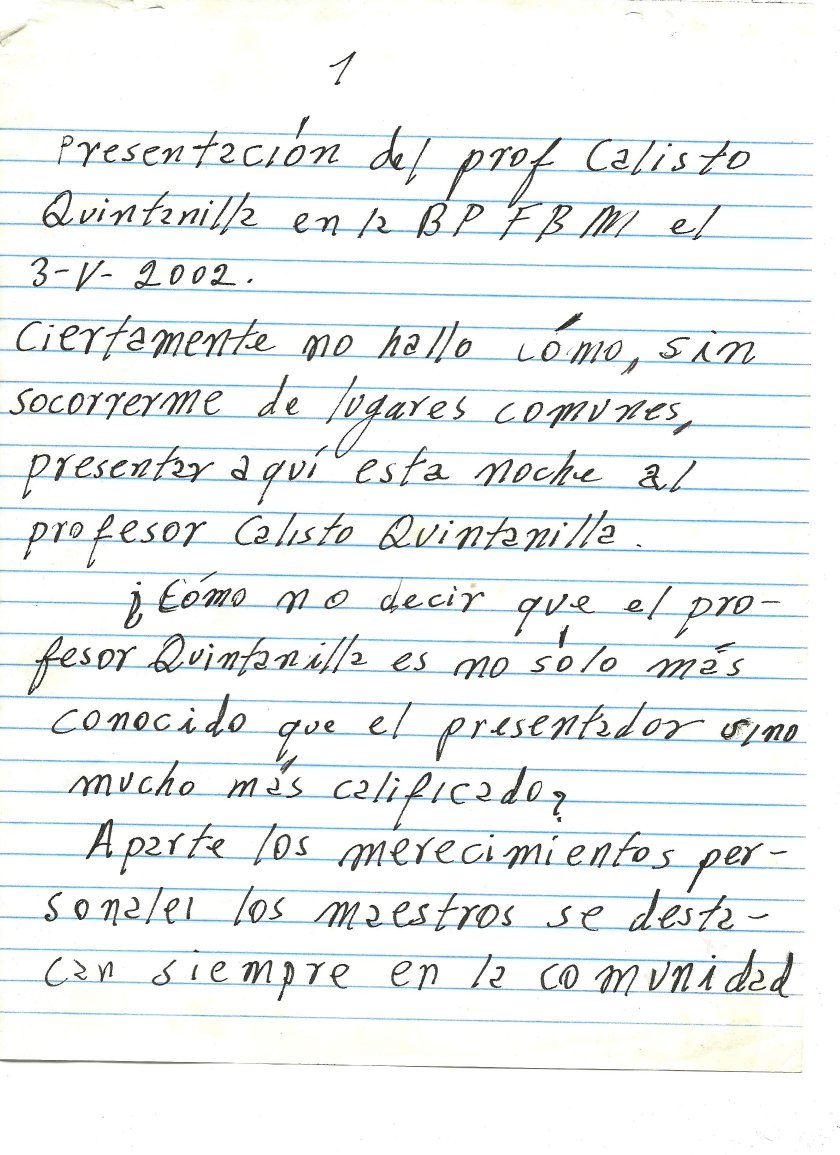 1
Presentación del prof Calisto
Quintanilla en la BPFBM el
3-V-2002.
Ciertamente no hallo cómo, sin
socorrerme de lugares comunes,
presentar aquí esta noche al
profesor Calisto Quintanilla.
¿Cómo no decir que el pro-
fesor Quintanilla es no sólo más
conocido que el presentador sino
mucho más calificado?
Aparte los merecimientos per-
sonales los maestros se desta-
can siempre en la comunidad